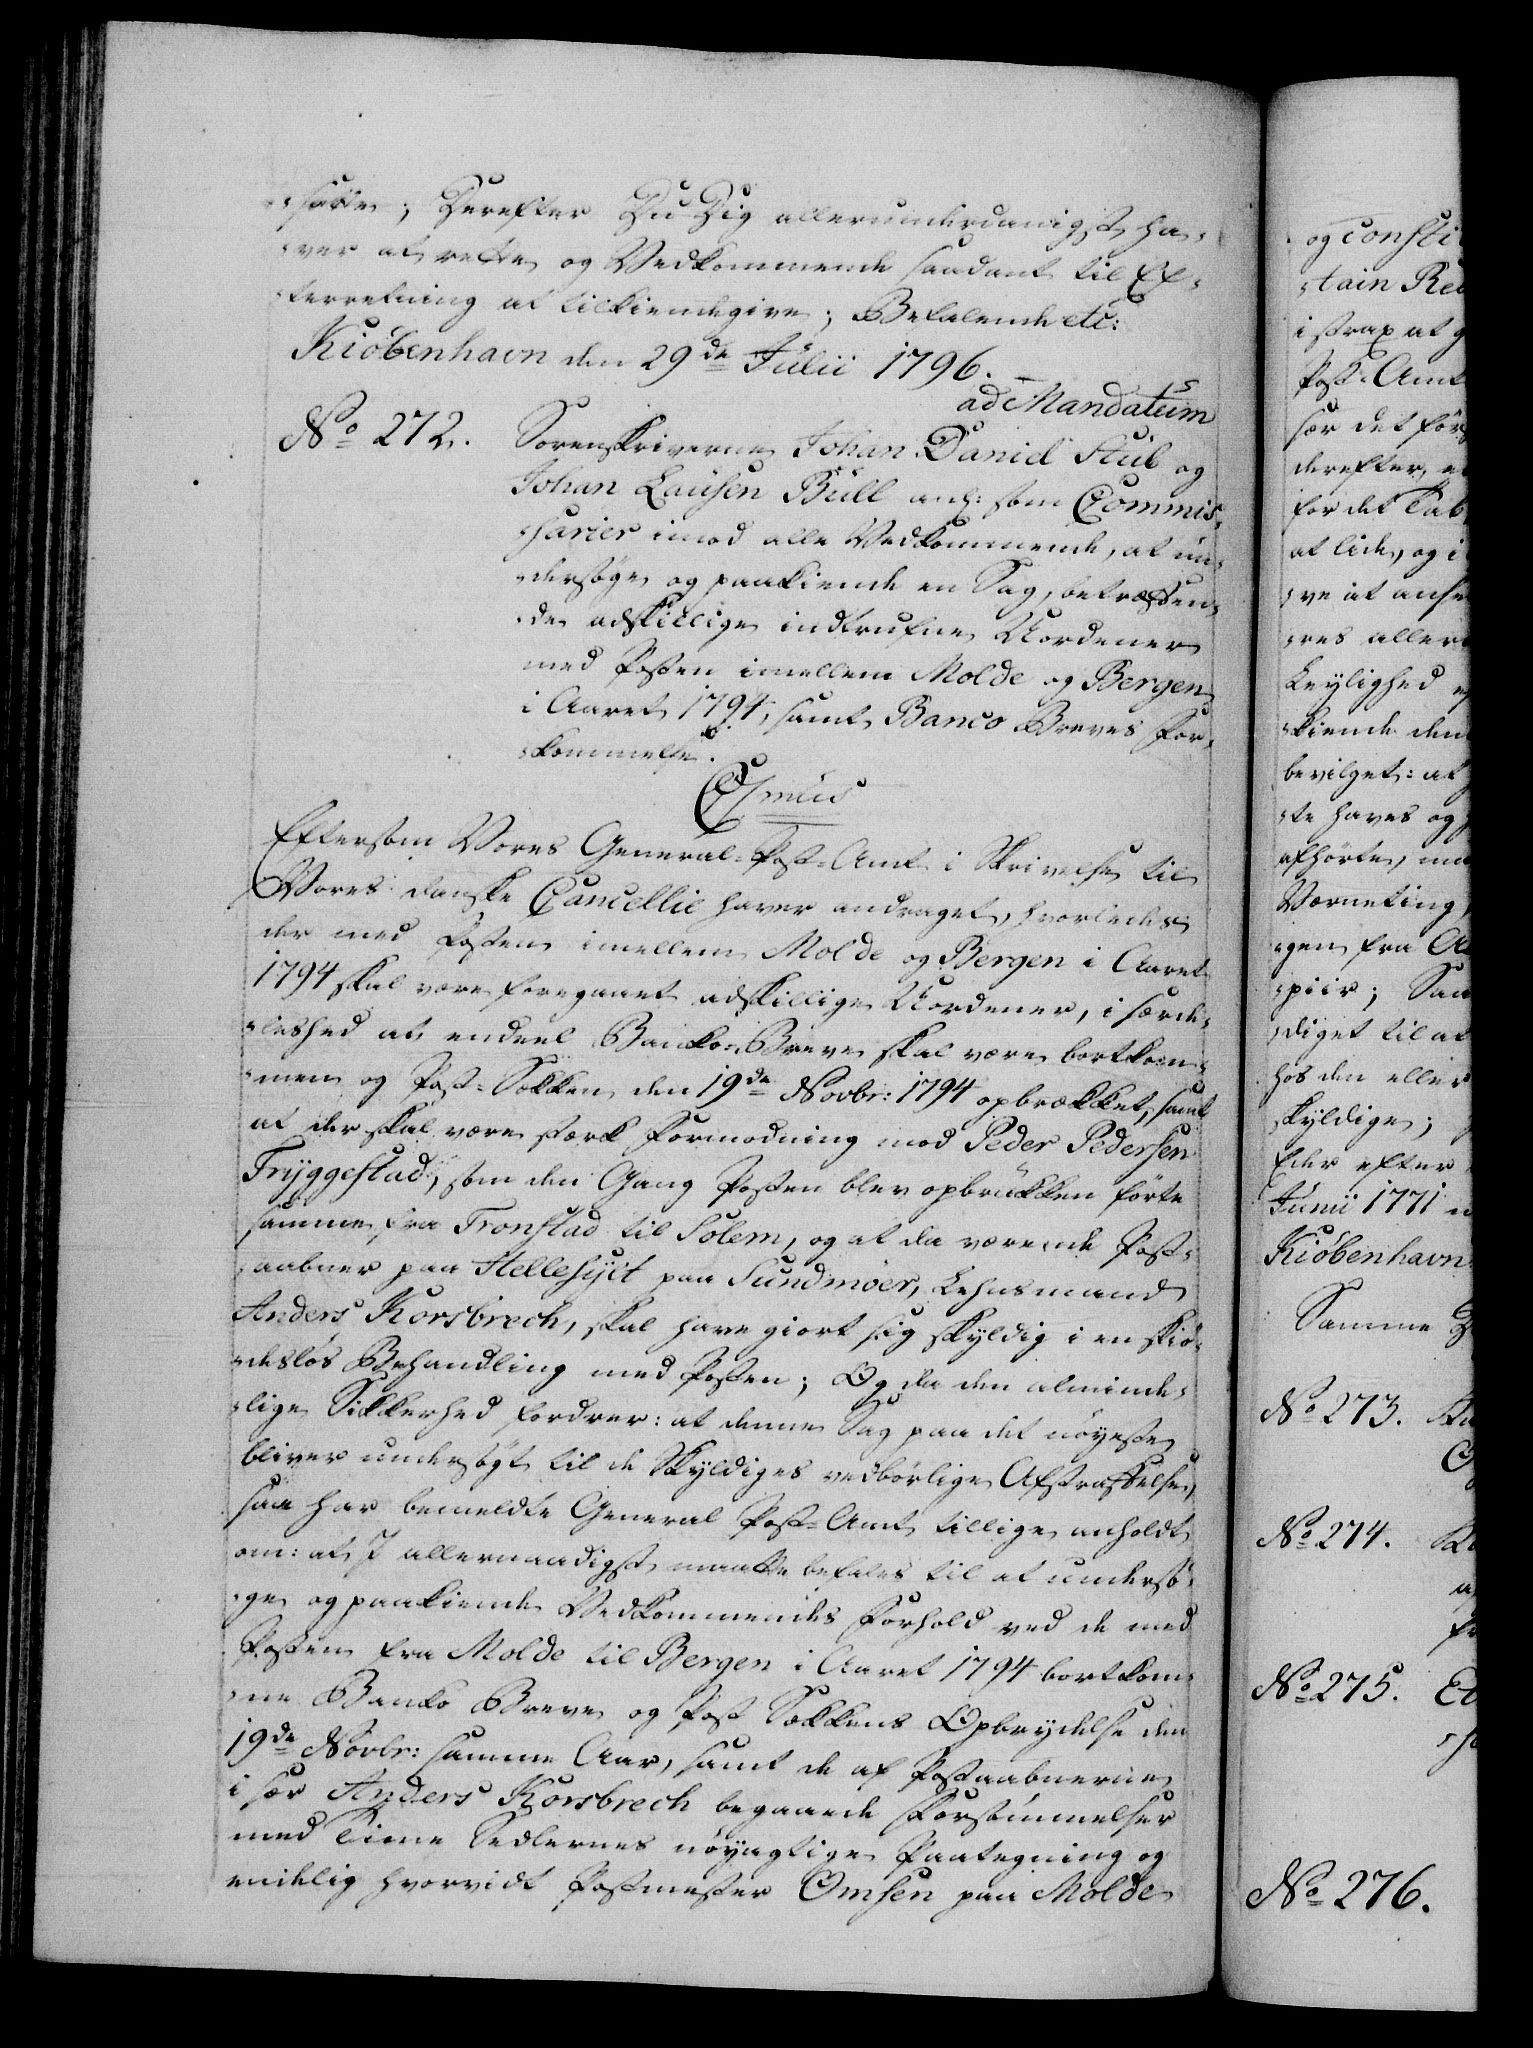 -satte; Derefter Du Dig allerunderdanigst ha-
-ver at rette og Vedkommende saadant til Ef-
-terretning at tilkiendegive; Befalende etc:
Kiöbenhavn den 29de Julii 1796.
ad Mandatum
No 272. Sorenskriverne Johan Daniel Stub og
Johan Lausen Bull anf: som Commis-
-sarier imod alle Vedkommende, at un-
-dersöge og paakiende en Sag, betræffen-
-de adskillige indtrufne Uordener
med Posten imellem Molde og Bergen
i Aaret 1794, samt Banco Breves For-
-kommelse.
C7mus
Eftersom Vores General-Post-Amt i Skrivelse til
Vores danske Cancellie haver andraget, hvorledes
der med Posten imellem Molde og Bergen i Aaret
1794 skal være foregaaet adskillige Uordener, i særde-
-leshed at endeel Banko-Breve skal være bortkom-
-men og Post-Sækken den 19de Novbr: 1794 opbrækket, samt
at der skal være stærk Formodning mod Peder Pedersen
Tryggestad, som den Gang Posten blev opbrukken förte
samme fra Tronstad til Solem, og at da værende Post-
-aabner paa Hellesylt paa Sundmöer, Lehnsmand
Anders Korsbrech, skal have giort sig skyldig i en skiö-
-deslös Behandling med Posten; Og da den alminde-
-lige Sikkerhed fordrer: at denne Sag paa det nöyeste
bliver undersögt til de Skyldiges vedbörlige Afstraffelse,
saa har bemeldte General Post-Amt tillige anholdt
om: at I allernaadigst maatte befales til at undersö-
-ge og paakiende Vedkommendes Forhold ved de med
Posten fra Molde til Bergen i Aaret 1794 bortkom-
-ne Banko Breve og Post Sækkens Opbrydelse den
19de Novbr: samme Aar, samt de af Postaabnerne
i sær Anders Korsbrech begaaede Forsömmelser
med Time Sedlernes nöyagtige Paategning og
endelig hvorvidt Postmester Omsen paa Molde
og consti
-tain Re
i strax at g
Post-Amt
for det för
derefter, e
for det Tab
at lide, og i
-ve at anse
-res aller
Leylighed
-kiende den
bevilget: at
-te haves og
afhörte, m
Værneting
-gen fra A
-piir; Saa
-diget til at
hos den eller
skyldige;
Eder efter
Junii 1771
Kiöbenhavn
Samme
No 273.
No 274.
No 275.
No 276.